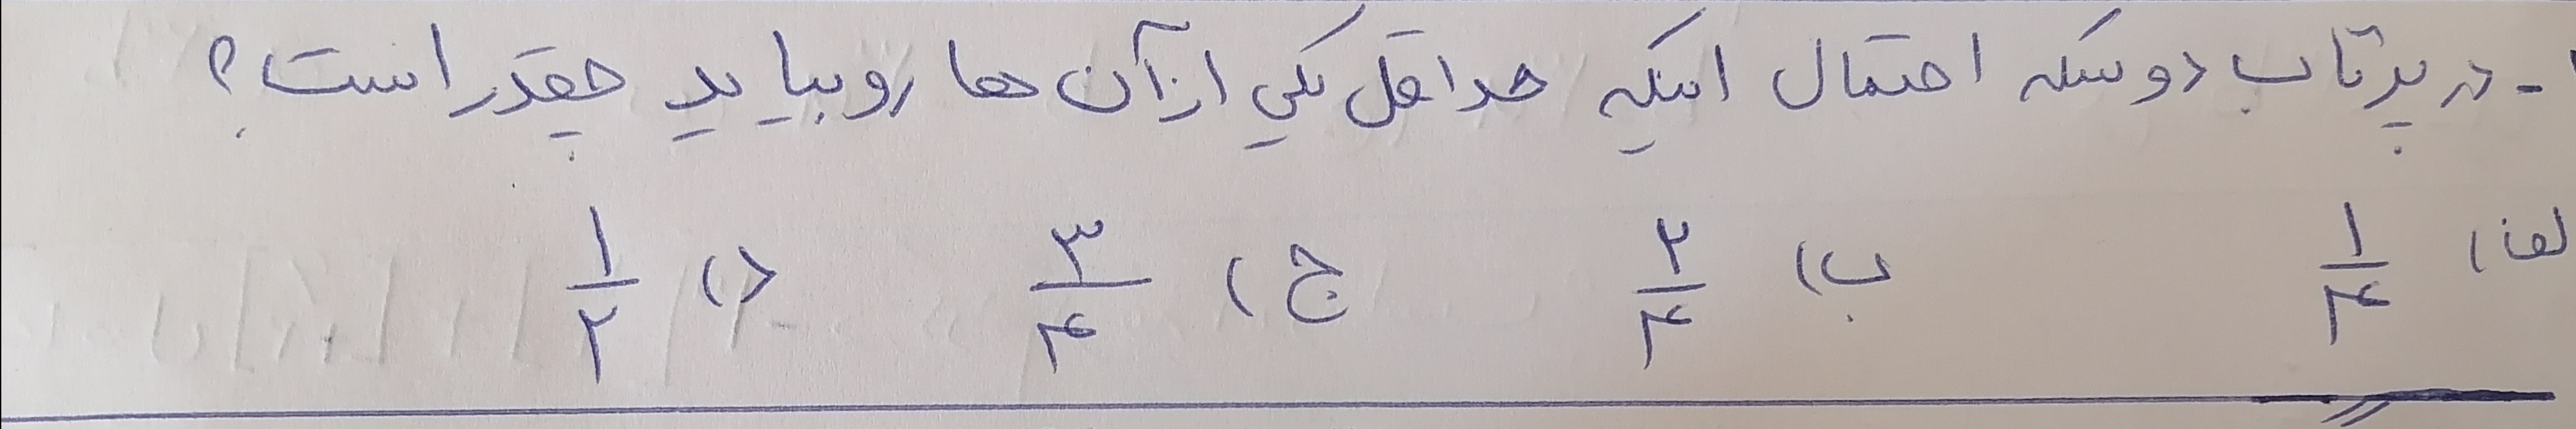 ۱- در پرتاب دو سکه احتمال اینکه حداقل یکی از آن ها رو بیاید چقدر است؟
الف) ۱/۴ ب) ۲/۴ ج) ۳/۴ د) ۱/۲